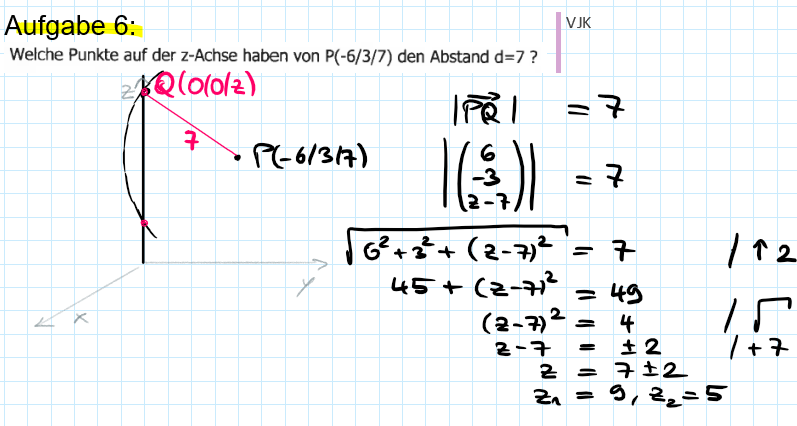 Aufgabe 6:
VJK
Welche Punkte auf der z-Achse haben von P(-6/3/7) den Abstand d=7 ?
z
Q(0/0/z)
7
P(-6/3/7)
y
x
|PQ⃗| = 7
|(6 -3 z-7)| = 7
√(6² + 3² + (z-7)²) = 7 / ↑ 2
45 + (z-7)² = 49
(z-7)² = 4 / √
z-7 = ±2 / +7
z = 7 ± 2
z₁ = 9, z₂ = 5